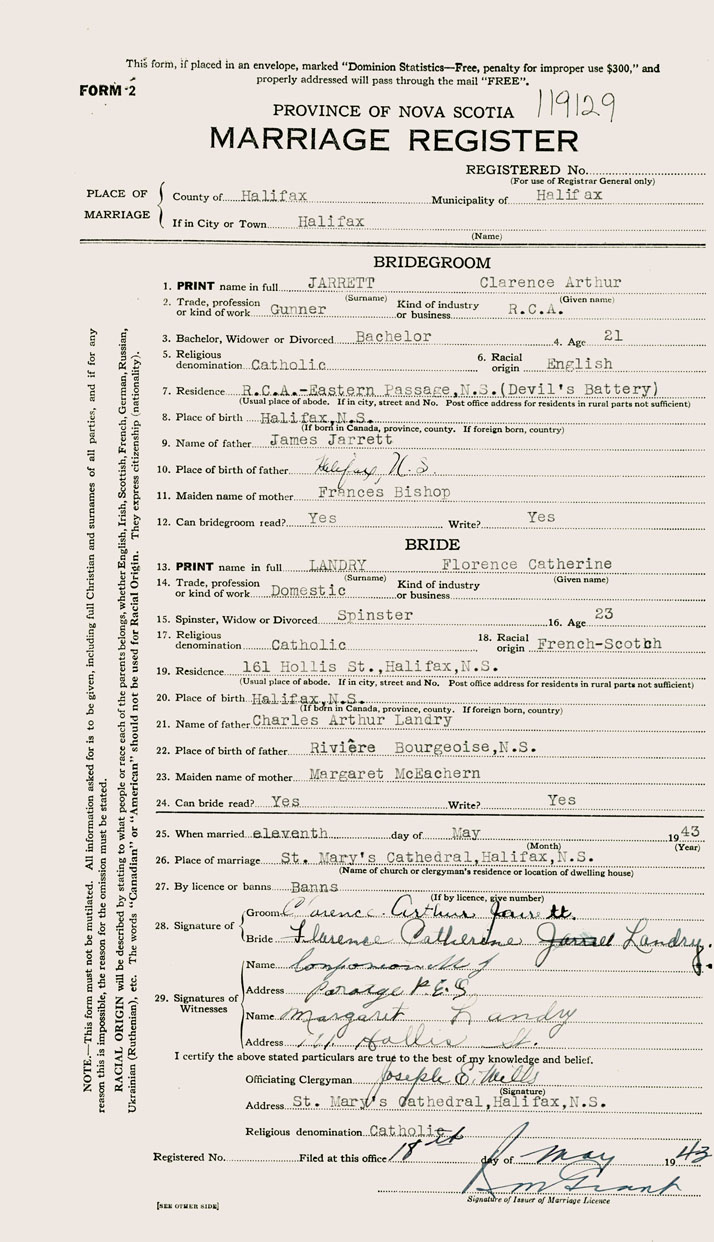 This form, if placed in an envelope, marked "Dominion Statistics—Free, penalty for improper use $300," and
properly addressed will pass through the mail "FREE".
FORM 2
119129
PROVINCE OF NOVA SCOTIA
MARRIAGE REGISTER
REGISTERED No.
(For use of Registrar General only)
PLACE OF MARRIAGE
County of Halifax Municipality of Halifax
If in City or Town Halifax
(Name)
BRIDEGROOM
1. PRINT name in full JARRETT Clarence Arthur
(Surname) (Given name)
2. Trade, profession or kind of work Gunner Kind of industry or business R.C.A.
3. Bachelor, Widower or Divorced Bachelor 4. Age 21
5. Religious denomination Catholic 6. Racial origin English
7. Residence R.C.A.-Eastern Passage,N.S.(Devil's Battery)
(Usual place of abode. If in city, street and No. Post office address for residents in rural parts not sufficient)
8. Place of birth Halifax,N.S.
(If born in Canada, province, county. If foreign born, country)
9. Name of father James Jarrett
10. Place of birth of father Halifax, N.S.
11. Maiden name of mother Frances Bishop
12. Can bridegroom read? Yes Write? Yes
BRIDE
13. PRINT name in full LANDRY Florence Catherine
(Surname) (Given name)
14. Trade, profession or kind of work Domestic Kind of industry or business
15. Spinster, Widow or Divorced Spinster 16. Age 23
17. Religious denomination Catholic 18. Racial origin French-Scotch
19. Residence 161 Hollis St.,Halifax,N.S.
(Usual place of abode. If in city, street and No. Post office address for residents in rural parts not sufficient)
20. Place of birth Halifax,N.S.
(If born in Canada, province, county. If foreign born, country)
21. Name of father Charles Arthur Landry
22. Place of birth of father Rivière Bourgeoise,N.S.
23. Maiden name of mother Margaret McEachern
24. Can bride read? Yes Write? Yes
25. When married eleventh day of May 1943
(Month) (Year)
26. Place of marriage St. Mary's Cathedral,Halifax,N.S.
(Name of church or clergyman's residence or location of dwelling house)
27. By licence or banns Banns
(If by licence, give number)
28. Signature of
Groom Clarence Arthur Jarrett.
Bride Florence Catherine Landry.
29. Signatures of Witnesses
Name
Address P.E.I.
Name Margaret Landry
Address Hollis St.
I certify the above stated particulars are true to the best of my knowledge and belief.
Officiating Clergyman Joseph E. Mills
(Signature)
Address St. Mary's Cathedral,Halifax,N.S.
Religious denomination Catholic
Registered No. Filed at this office 18th day of May 1943
Signature of Issuer of Marriage Licence
[SEE OTHER SIDE]
NOTE.—This form must not be mutilated. All information asked for is to be given, including full Christian and surnames of all parties, and if for any
reason this is impossible, the reason for the omission must be stated.
RACIAL ORIGIN will be described by stating to what people or race each of the parents belongs, whether English, Irish, Scottish, French, German, Russian,
Ukrainian (Ruthenian), etc. The words "Canadian" or "American" should not be used for Racial Origin. They express citizenship (nationality).